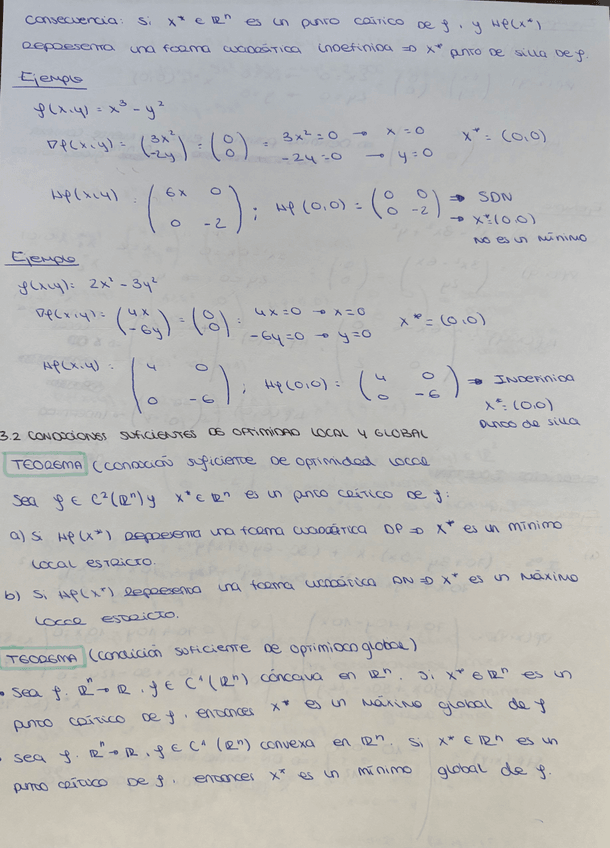 Consecuencia: Si x* ∈ ℝⁿ es un punto crítico de f, y Hf(x*)
Representa una forma cuadrática indefinida ⇒ x* punto de silla de f.
Ejemplo
f(x,y) = x³ - y²
∇f(x,y) = (3x² -2y) = (0 0) = 3x²=0 → x=0 x* = (0,0)
-2y=0 → y=0
Hf(x,y) : (6x 0 0 -2) ; Hf(0,0) = (0 0 0 -2) ⇒ SDN
→ x*=(0,0)
no es un mínimo
Ejemplo
f(x,y) = 2x² - 3y²
∇f(x,y) = (4x -6y) = (0 0) : 4x=0 → x=0 x* = (0,0)
-6y=0 → y=0
Hf(x,y) : (4 0 0 -6) ; Hf(0,0) = (4 0 0 -6) ⇒ Indefinida
x* = (0,0)
punto de silla
3.2 CONDICIONES SUFICIENTES DE OPTIMIDAD LOCAL Y GLOBAL
TEOREMA (condición suficiente de optimidad local
Sea f ∈ C²(ℝⁿ) y x* ∈ ℝⁿ es un punto crítico de f:
a) Si Hf(x*) Representa una forma cuadrática DP ⇒ x* es un mínimo
local estricto.
b) Si Hf(x*) Representa una forma cuadrática DN ⇒ x* es un máximo
local estricto.
TEOREMA (condición suficiente de optimidad global)
• Sea f: ℝⁿ → ℝ, f ∈ C¹(ℝⁿ) cóncava en ℝⁿ. Si x* ∈ ℝⁿ es un
punto crítico de f, entonces x* es un máximo global de f
• Sea f: ℝⁿ → ℝ, f ∈ C¹(ℝⁿ) convexa en ℝⁿ. Si x* ∈ ℝⁿ es un
punto crítico de f, entonces x* es un mínimo global de f.